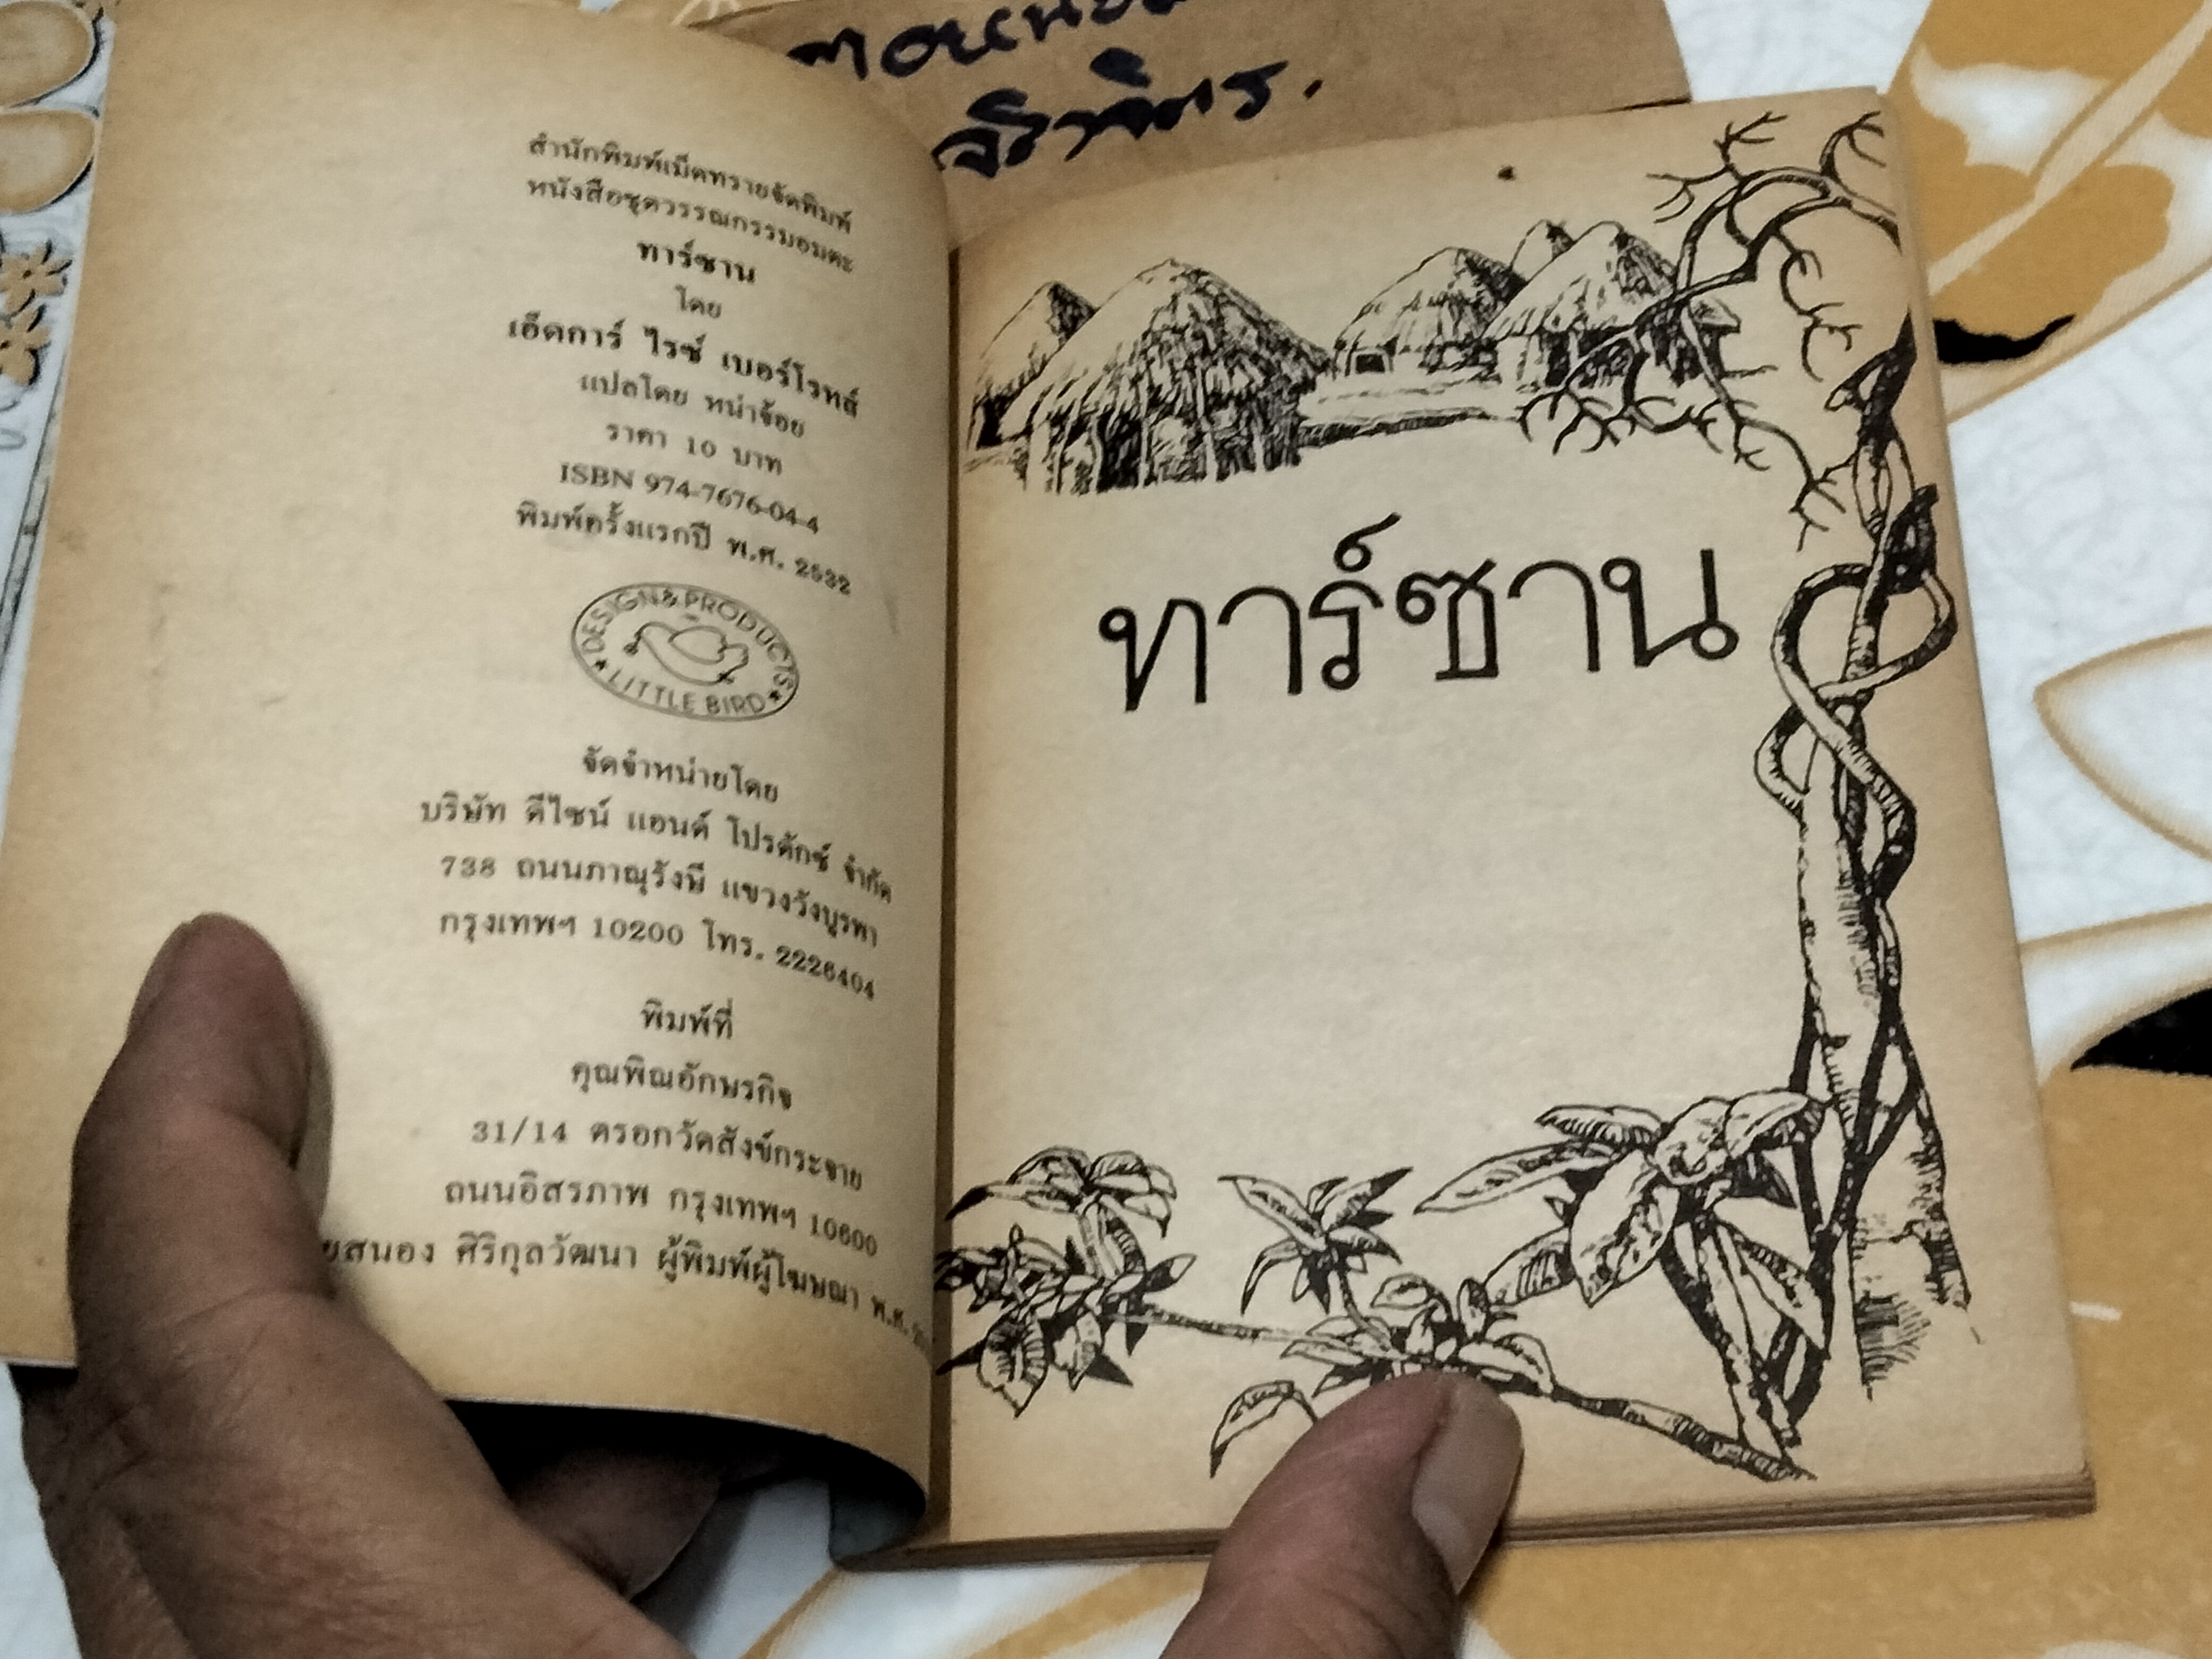 จิราจิตร.
สำนักพิมพ์เม็ดทรายจัดพิมพ์
หนังสือชุดวรรณกรรมอมตะ
ทาร์ซาน
โดย
เอ็ดการ์ ไรซ์ เบอร์โรทส์
แปลโดย หน่าจ้อย
ราคา 10 บาท
ISBN 974-7676-04-4
พิมพ์ครั้งแรกปี พ.ศ. 2532
DESIGN & PRODUCTS
LITTLE BIRD
จัดจำหน่ายโดย
บริษัท ดีไซน์ แอนด์ โปรดักซ์ จำกัด
738 ถนนภาณุรังษี แขวงวังบูรพา
กรุงเทพฯ 10200 โทร. 2226404
พิมพ์ที่
คุณพิณอักษรกิจ
31/14 ตรอกวัดสังข์กระจาย
ถนนอิสรภาพ กรุงเทพฯ 10600
ยสนอง ศิริกุลวัฒนา ผู้พิมพ์ผู้โฆษณา พ.ศ.
ทาร์ซาน